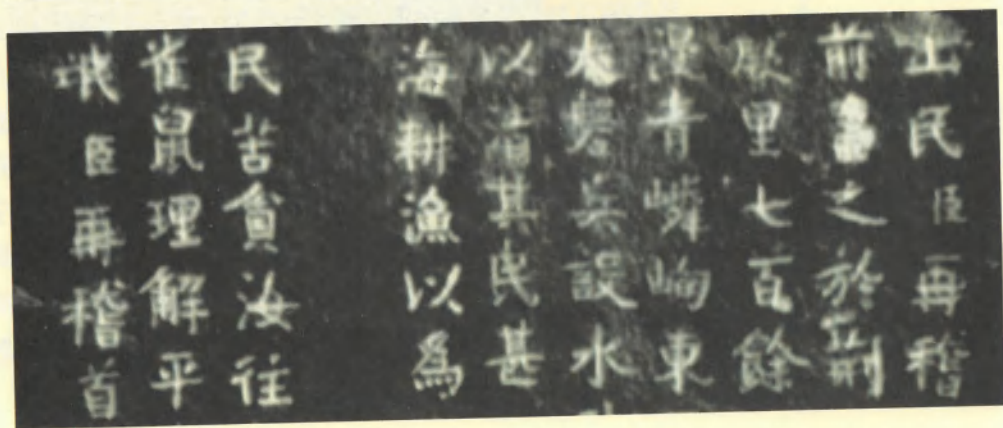 民臣再稽
前之於荊
厥里七百餘
青嶙峋東
兵設水
以其民甚
海耕漁以爲
民苦貧汝往
雀鼠理解平
臣再稽首